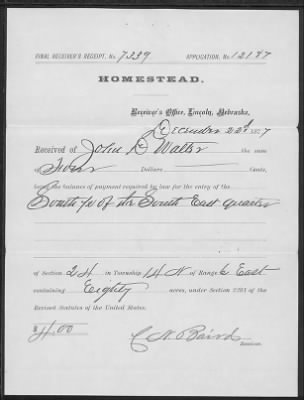 FINAL RECEIVER'S RECEIPT, No. 7339 APPLICATION, No. 12147
HOMESTEAD.
Receiver's Office, Lincoln, Nebraska,
December 22d, 1877
Received of John D. Walter the sum
of Four Dollars Cents,
being the balance of payment required by law for the entry of the
South ½ of the South East quarter
of Section 24 in Township 14 N of Range 6 East
containing Eighty acres, under Section 2291 of the
Revised Statutes of the United States.
$4.00
C. N. Baird
Receiver.